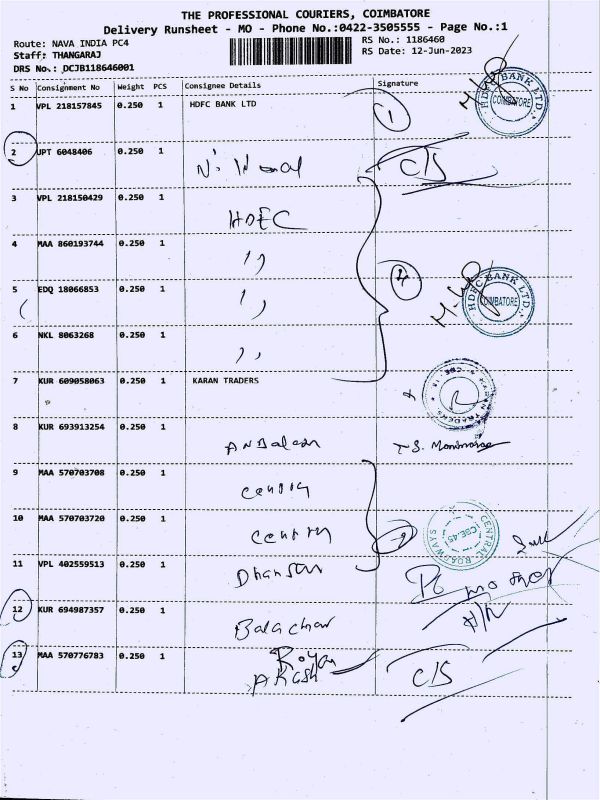 THE PROFESSIONAL COURIERS, COIMBATORE
Delivery Runsheet - MO - Phone No.:0422-3505555 - Page No.:1
Route: NAVA INDIA PC4
RS No.: 1186460
Staff: THANGARAJ
RS Date: 12-Jun-2023
DRS No.: DCJB118646001
S No Consignment No Weight PCS Consignee Details Signature
1 VPL 218157845 0.250 1 HDFC BANK LTD 1
HDFC BANK LTD. COIMBATORE
2 JPT 6048406 0.250 1 C/S
3 VPL 218150429 0.250 1 HDFC
4 MAA 860193744 0.250 1 ,,
5 EDQ 18066853 0.250 1 ,, 4
HDFC BANK LTD. COIMBATORE
6 NKL 8063268 0.250 1 ,,
7 KUR 609058063 0.250 1 KARAN TRADERS
KARAN TRADERS
8 KUR 693913254 0.250 1 T.S.
9 MAA 570703708 0.250 1
10 MAA 570703720 0.250 1
CENTRAL ROADWAYS CBE-45
11 VPL 402559513 0.250 1
12 KUR 694987357 0.250 1
13 MAA 570776783 0.250 1 Akash C/S